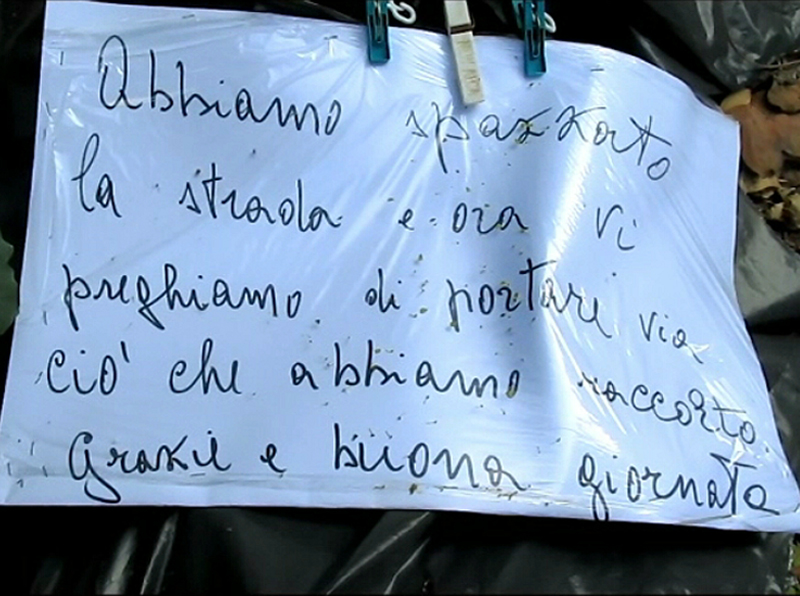 Abbiamo spazzato
la strada e ora vi
preghiamo di portare via
ciò che abbiamo raccolto
Grazie e buona giornata